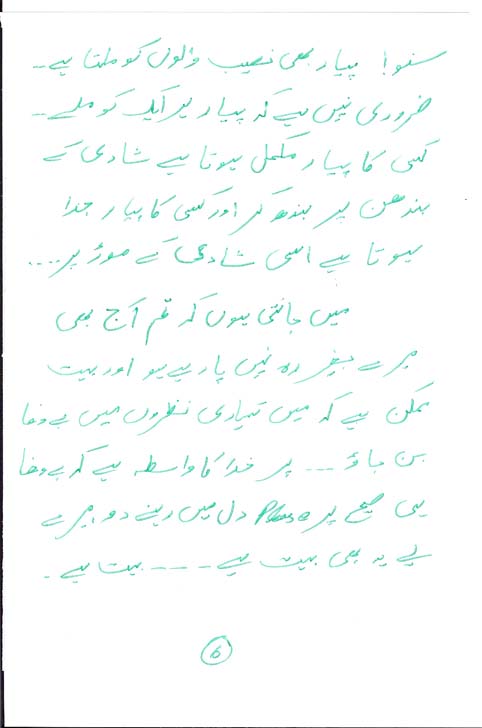 سنو! پیار بھی نصیب والوں کو ملتا ہے۔
ضروری نہیں ہے کہ پیار ہر ایک کو ملے۔
کسی کا پیار مکمل ہوتا ہے شادی کے
بندھن پر بندھ کر اور کسی کا پیار جدا
ہوتا ہے اسی شادی کے موڑ پر....
میں جانتی ہوں کہ تم آج بھی
میرے بغیر رہ نہیں پا رہے ہو اور بہت
ممکن ہے کہ میں تمہاری نظروں میں بے وفا
بن جاؤ --- پر خدا کا واسطہ ہے کہ بے وفا
ہی صحیح پر Please دل میں رہنے دو، میرے
لیے یہ بھی بہت ہے ---- بہت ہے۔
6